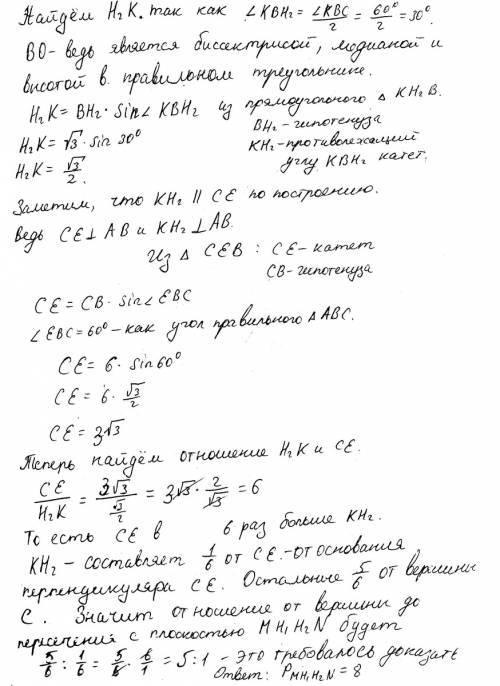 Найдём H₂K. так как ∠KBH₂ = ∠KBC/2 = 60°/2 = 30°.
BO - ведь является биссектрисой, медианой и
высотой в правильном треугольнике.
H₂K = BH₂ · sin∠KBH₂ из прямоугольного △ KH₂B.
H₂K = √3 · sin 30° BH₂ - гипотенуза
H₂K = √3/2. KH₂ - противолежащий
углу KBH₂ катет.
Заметим, что KH₂ ∥ CE по построению.
Ведь CE ⊥ AB и KH₂ ⊥ AB.
Из △ CEB : CE - катет
CB - гипотенуза
CE = CB · sin∠EBC
∠EBC = 60° - как угол правильного △ABC.
CE = 6 · sin 60°
CE = 6 · √3/2
CE = 3√3
Теперь найдём отношение H₂K и CE.
CE/H₂K = 3√3/(√3/2) = 3√3 · 2/√3 = 6
То есть CE в 6 раз больше KH₂.
KH₂ - составляет 1/6 от CE. - от основания
перпендикуляра CE. Остальные 5/6 от вершины
C. Значит отношение от вершины до
пересечения с плоскостью MH₁H₂N будет
5/6 : 1/6 = 5/6 · 6/1 = 5:1 - это требовалось доказать
Ответ: P MH₁H₂N = 8